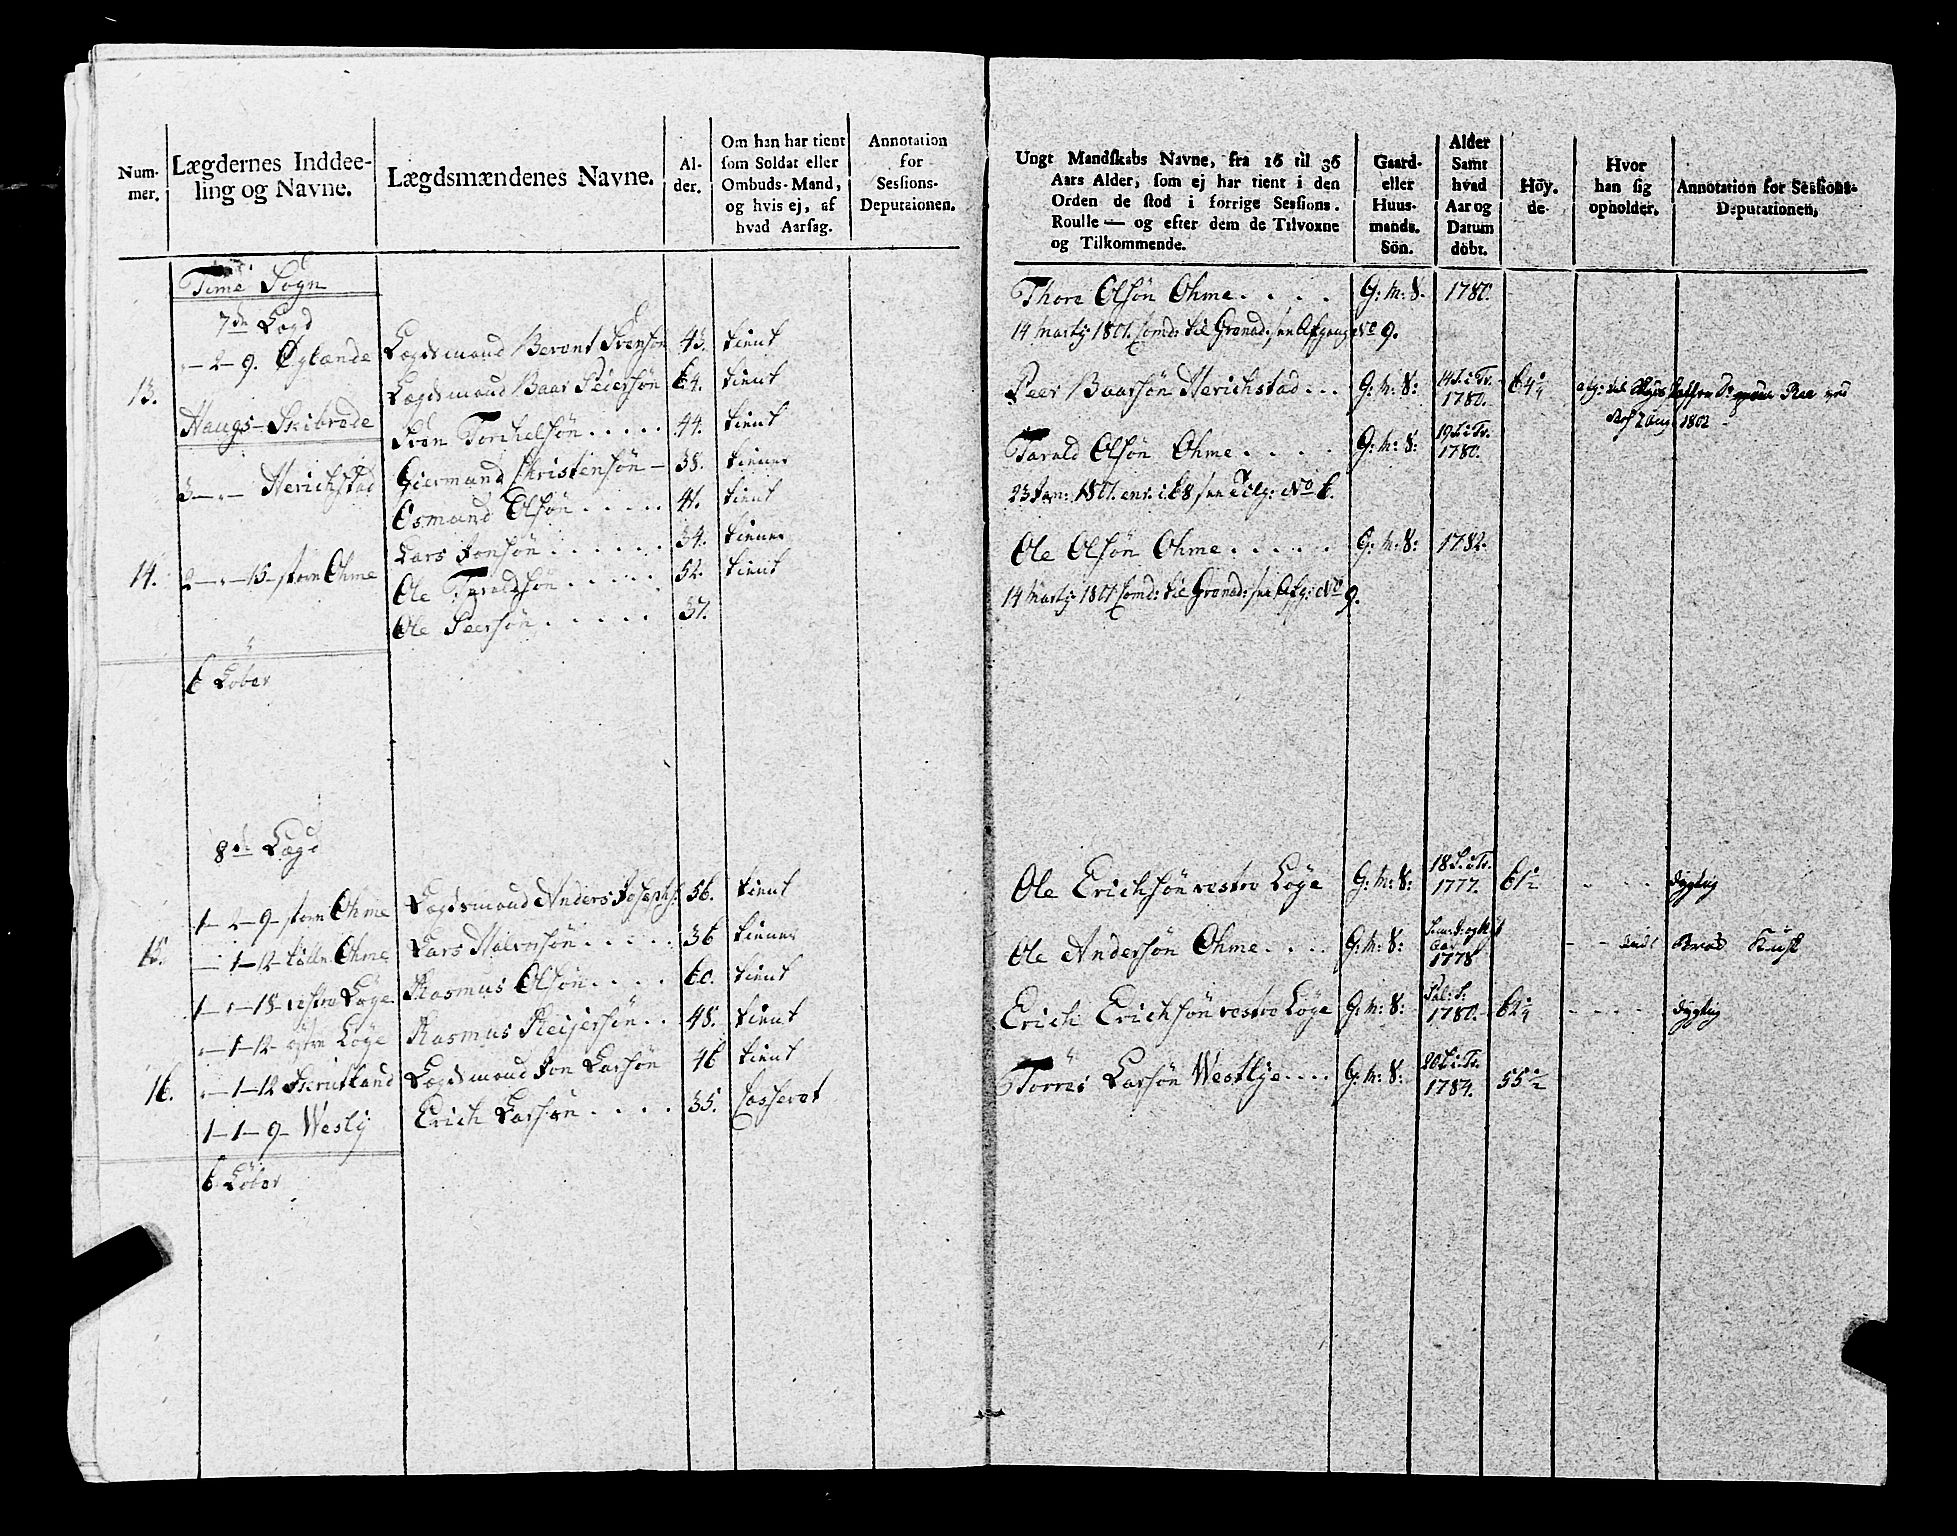 Num-
mer.
Lægdernes Inddee-
ling og Navne.
Lægdsmændenes Navne.
Al-
der.
Om han har tient
som Soldat eller
Ombuds-Mand,
og hvis ej, af
hvad Aarsag.
Annotation
for
Sessions-
Deputaionen.
Time Sogn
7de Lægd
" 2 - 9. Øglænde
Lægdsmand Beront Svensøn 43. tient
13.
Lægdsmand Baar Peiersøn 64. tient
Haugs-Skibrede
Sven Torchelsøn ..... 44. tient
3 - " - Herichstad
Giermund Christensøn - 38. tienner
Osmund Olsøn ..... 41. tient
Lars Jonsøn ...... 34. tienner
14. 2 - " - 15 - storn Ohme
Ole Taraldsøn ..... 52. tient
Ole Peersøn ...... 37.
6 Løber
8de Lægd
1 - 2 - 9 - storn Ohme
Lægdsmand Anders Josephs: 56. tient
15. - 1 - 12 - Lille Ohme
Lars Halversøn ..... 36 tienner
1 - " - 18 - vestre Løge
Rasmus Olsøn .... 60. tient
" - 1 - 12 - østre Løge
Rasmus Reijersøn .. 48. tient
16. " - 1 - 12 Skrutland
Lægdsmand Jon Larsøn 46 tient
1 - 1 - 9 - Westly
Erich Larsøn .... 35. Casserat
6 Løber
Ungt Mandskabs Navne, fra 16 til 36
Aars Alder, som ej har tient i den
Orden de stod i forrige Sessions.
Roulle — og efter dem de Tilvoxne
og Tilkommende.
Gaard-
eller
Huus-
mands.
Sön.
Alder
Samt
hvad
Aar og
Datum
döbt.
Höy.
de.
Hvor
han sig
opholder.
Annotation for Sessions-
Deputationen,
Thore Olsøn Ohme .... G: M: S. 1780.
14 Martij 1801. Comd: til Grenad: see Afgang No 9.
Peer Baarsøn Herichstad ... G: M: S: 14 S: i Tr. 1780. 64 1/4
1802 -
Tarald Olsøn Ohme .... G: M: S: 19 S: i Tr. 1780.
23 Jan: 1801. enr. i 68 see Tilg: No 6.
Ole Olsøn Ohme ..... G: M: S: 1782.
14 Martij 1801 Comd: til Grenad: see Afg: No 9.
Ole Erichsøn vestre Løge G: M: S: 18 S: i Tr. 1777. 61 1/2 dygtig
Ole Andersøn Ohme .... G: M: S: 1778
Erich Erichsøn vestre Løge G: M: S: 1780. 62 1/4 dygtig
Torres Larsøn Westlye .... G: M: S: 20 S: i Tr. 1784. 55 1/2